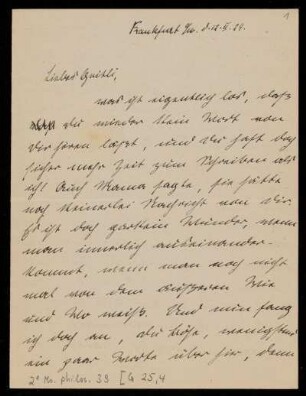 1
Frankfurt /M. d. 12. II. 29.
Liebes
was ist eigentlich los, daß
du wieder kein Wort von
dir hören läßt, und du hast doch
sicher mehr Zeit zum Schreiben als
ich! Auch Mama sagte, sie hätte
noch keinerlei Nachricht von dir.
Es ist doch gar kein Wunder, wenn
man innerlich auseinander-
kommt, wenn man noch nicht
mal von dem äußeren Wie
und Wo weiß. Und nun fang
ich doch an, du böse, wenigstens
ein paar Worte über hier, denn
2° Ms. philos. 39 [G 25,4